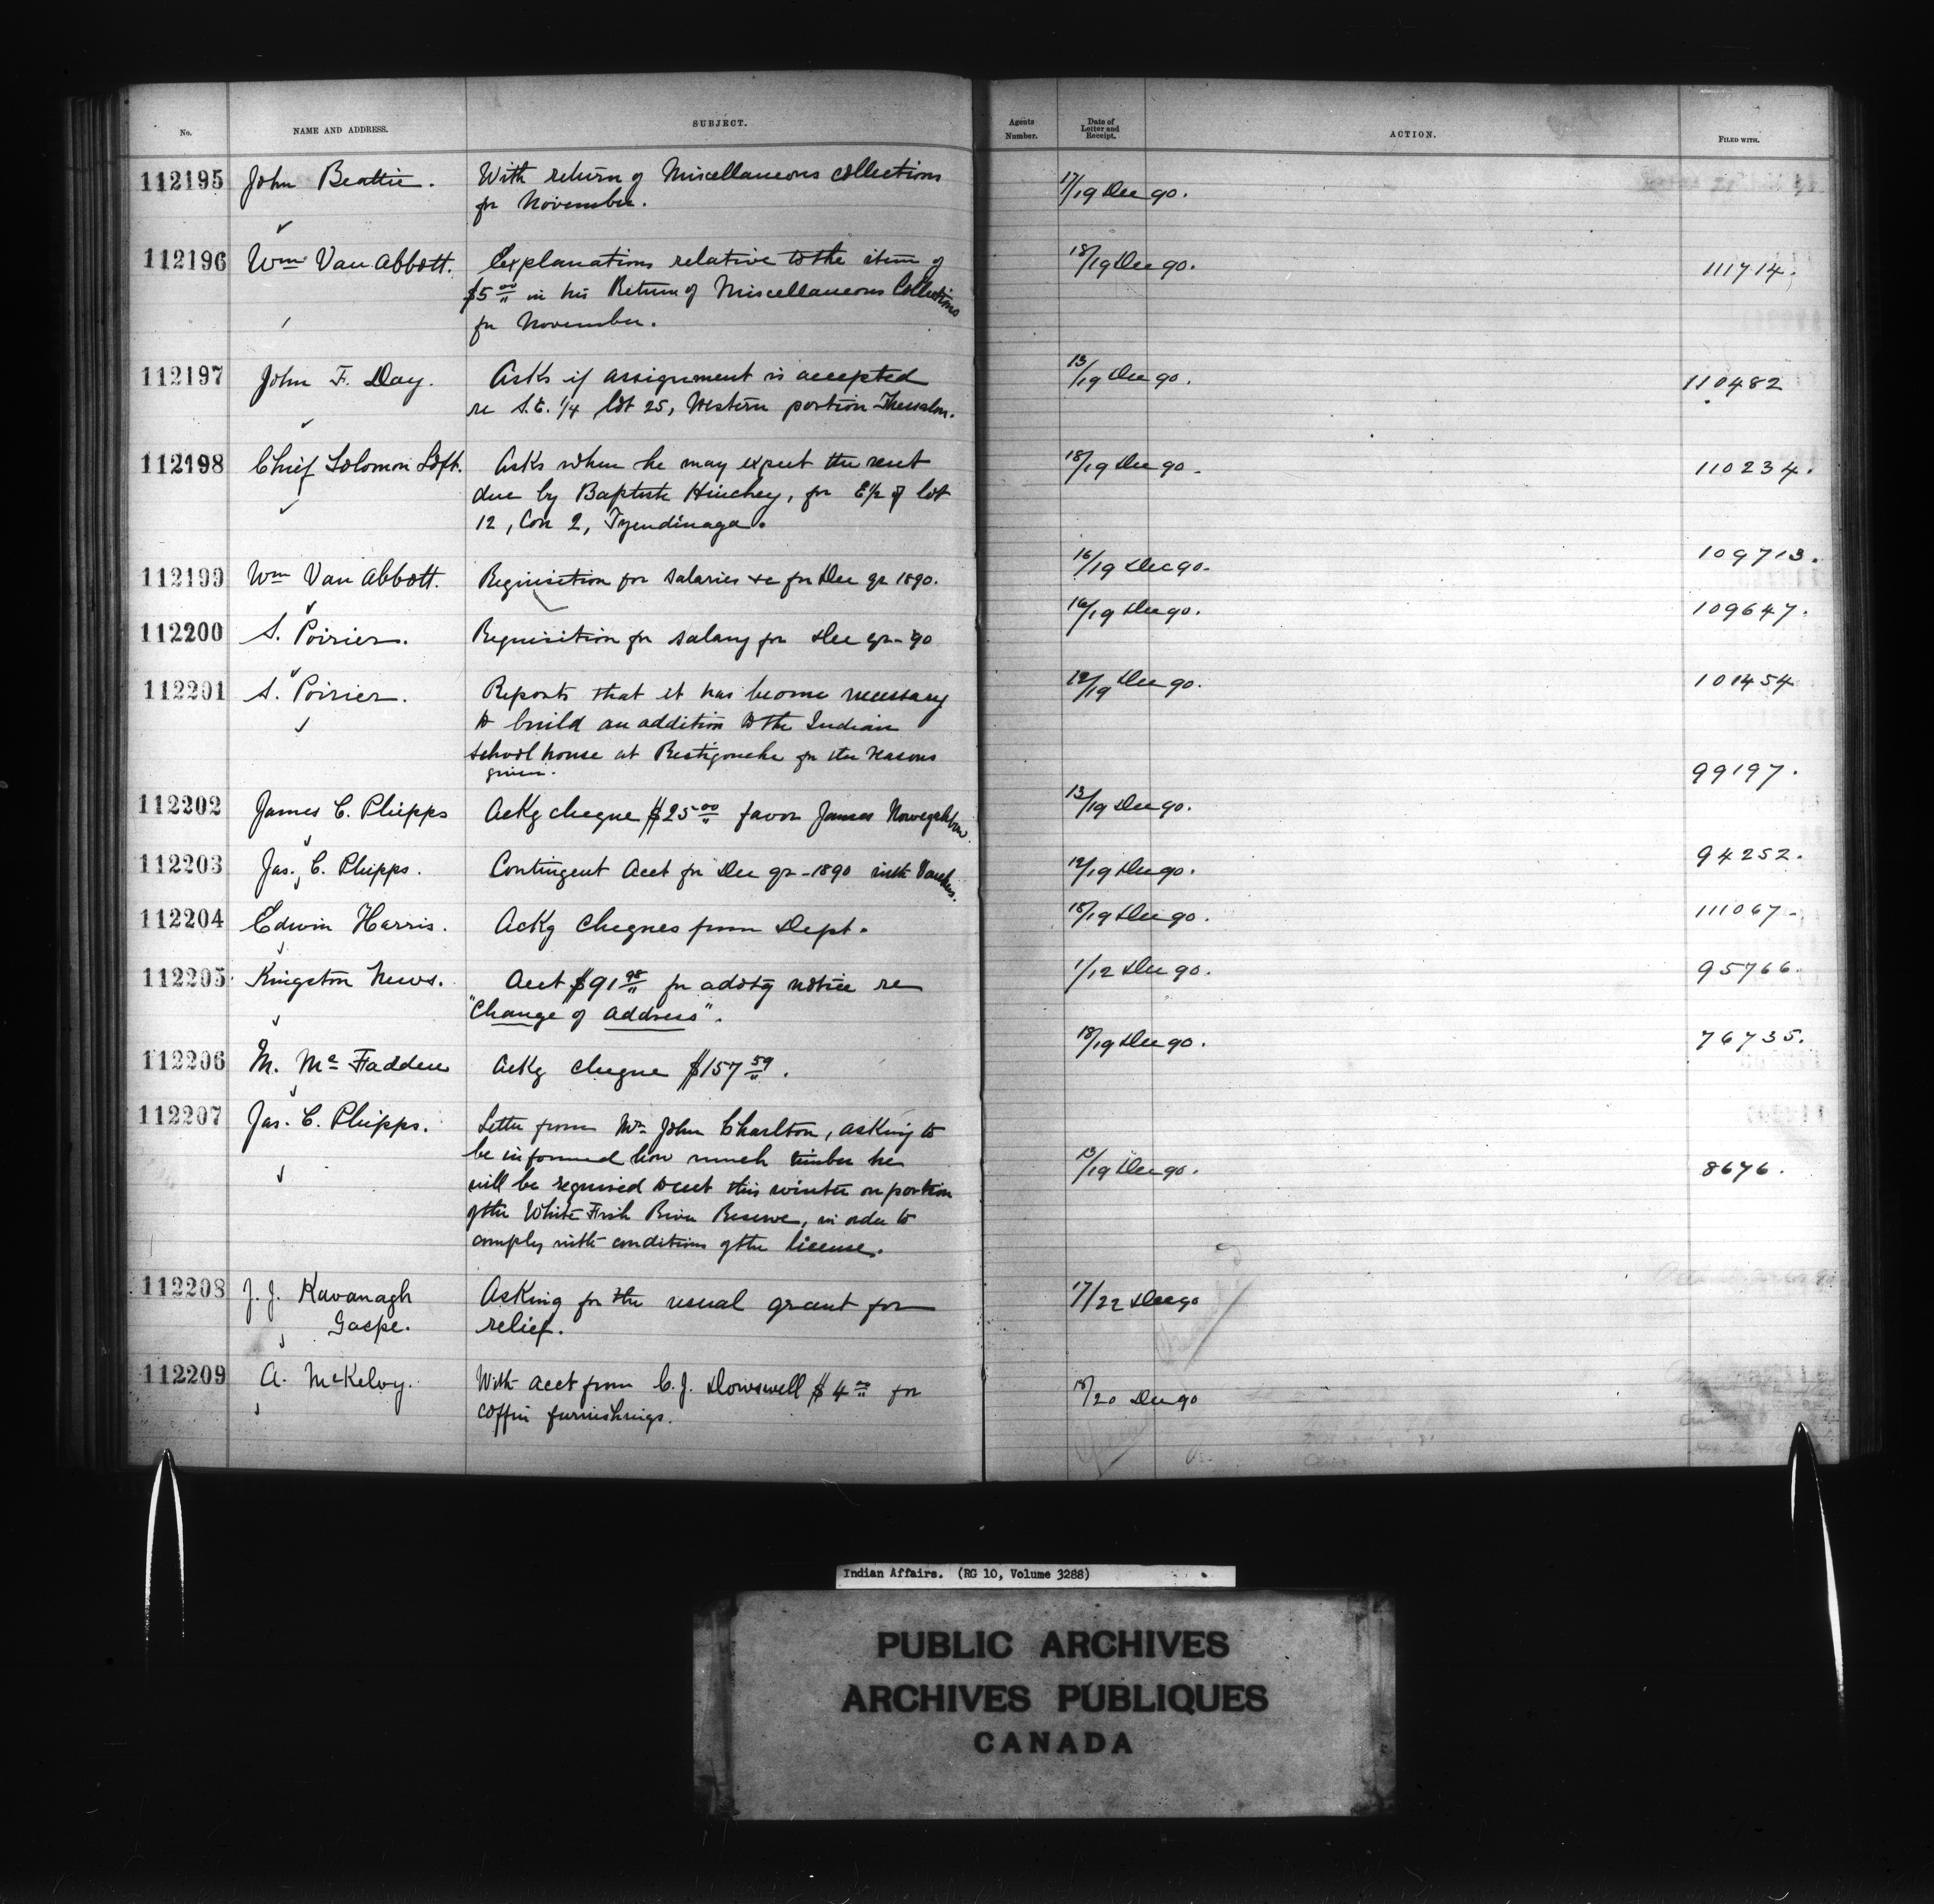 No. NAME AND ADDRESS. SUBJECT. Agents Number. Date of Letter and Receipt. ACTION. FILED WITH.
112195 John Beattie. With return of Miscellaneous collections 17/19 Dec 90.
for November.
112196 Wm Van Abbott. Explanations relative to the item of 18/19 Dec 90. 111714.
$5 00 in his Return of Miscellaneous Collections
for November.
112197 John F. Day. Asks if assignment is accepted 13/19 Dec 90. 110482
re S.E. 1/4 lot 25, Western portion Thessalon.
112198 Chief Solomon Loft. Asks when he may expect the rent 18/19 Dec 90. 110234.
due by Baptiste Hinchey, for E 1/2 of lot
12, Con 2, Tyendinaga.
112199 Wm Van Abbott. Requisition for Salaries &c for Dec qr 1890. 16/19 Dec 90. 109713.
112200 S. Poirier. Requisition for salary for Dec qr - 90 16/19 Dec 90. 109647.
112201 S. Poirier. Reports that it has become necessary 12/19 Dec 90. 101454
to build an addition to the Indian
school house at Restigouche for the reasons
given.
112202 James C. Phipps Ackg cheque $25 00 favor James 13/19 Dec 90. 99197.
112203 Jas. C. Phipps. Contingent Acct for Dec qr - 1890 with Vouchers. 12/19 Dec 90. 94252.
112204 Edwin Harris. Ackg Cheques from Dept. 18/19 Dec 90. 111067
112205 Kingston News. Acct $91 98 for advtg notice re 1/12 Dec 90. 95766.
"Change of Address".
112206 M. Mc Fadden Ackg cheque $157 59. 18/19 Dec 90. 76735.
112207 Jas. C. Phipps. Letter from Mr John Charlton, asking to
be informed how much timber he 13/19 Dec 90. 8676.
will be required to cut this winter on portion
of the White Fish River Reserve, in order to
comply with conditions of the license.
112208 J. J. Kavanagh Asking for the usual grant for 17/22 Dec 90
Gaspe. relief.
112209 A. McKelvy. With acct from C. J. Dowswell $4 for 18/20 Dec 90
coffin furnishings.
Indian Affairs. (RG 10, Volume 3288)
PUBLIC ARCHIVES
ARCHIVES PUBLIQUES
CANADA